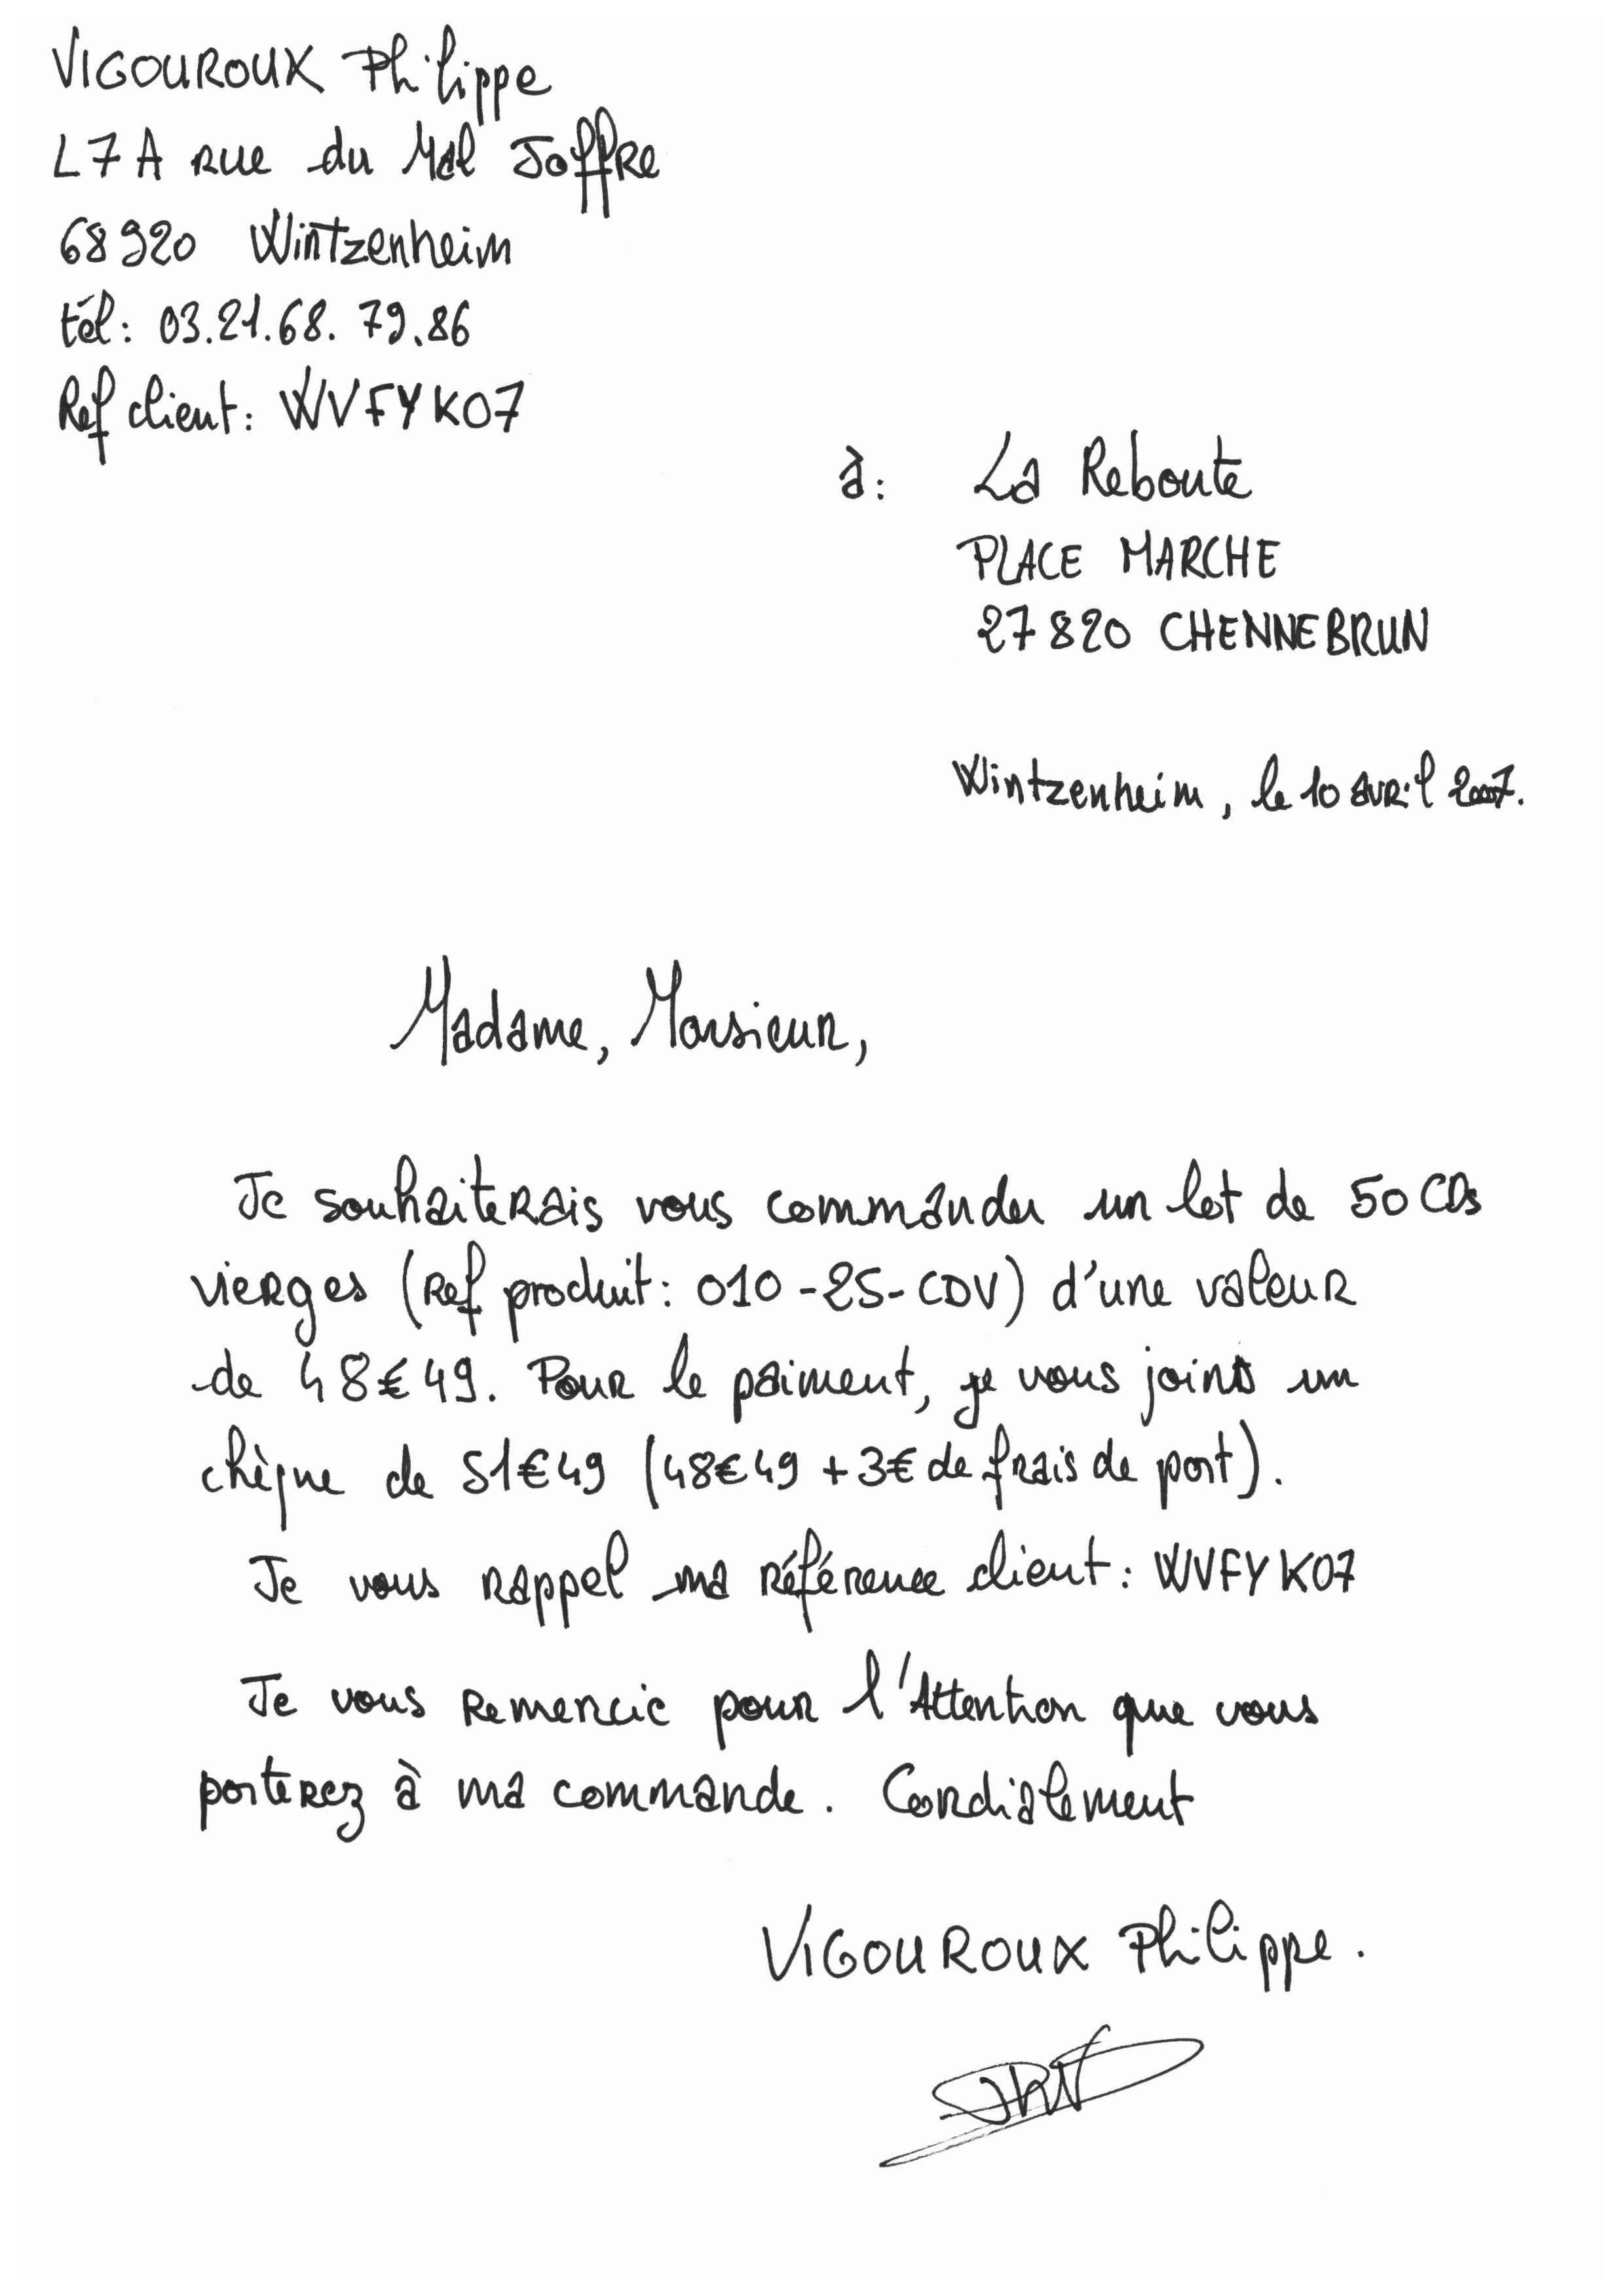 VIGOUROUX Philippe
L7A rue du Mal Joffre
68920 Wintzenheim
tél: 03.21.68.79.86
Ref client: WVFYK07
à: La Reboute
PLACE MARCHE
27820 CHENNEBRUN
Wintzenheim, le 10 avril 2007.
Madame, Monsieur,
Je souhaiterais vous commander un lot de 50 CDs
vierges (Ref produit: 010-25-CDV) d'une valeur
de 48€49. Pour le paiment, je vous joins un
chèque de 51€49 (48€49 + 3€ de frais de port).
Je vous rappel ma référence client: WVFYK07
Je vous remercie pour l'Attention que vous
porterez à ma commande. Cordialement
VIGOUROUX Philippe.